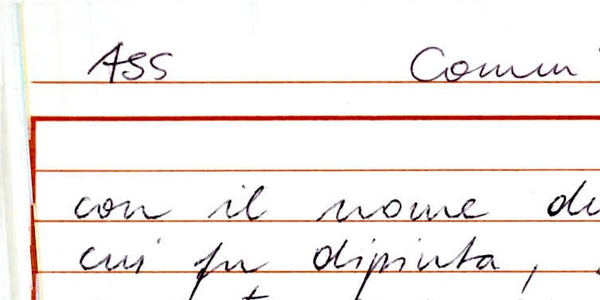 Ass Comm
con il nome
cui fu dipinta,